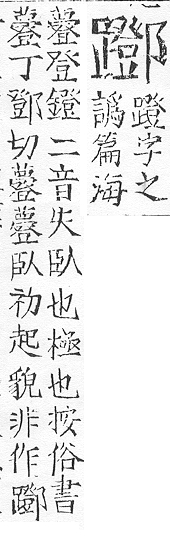 蹬字之
譌篇海
登鐙二音失臥也極也按俗書
丁鄧切臥初起貌非作